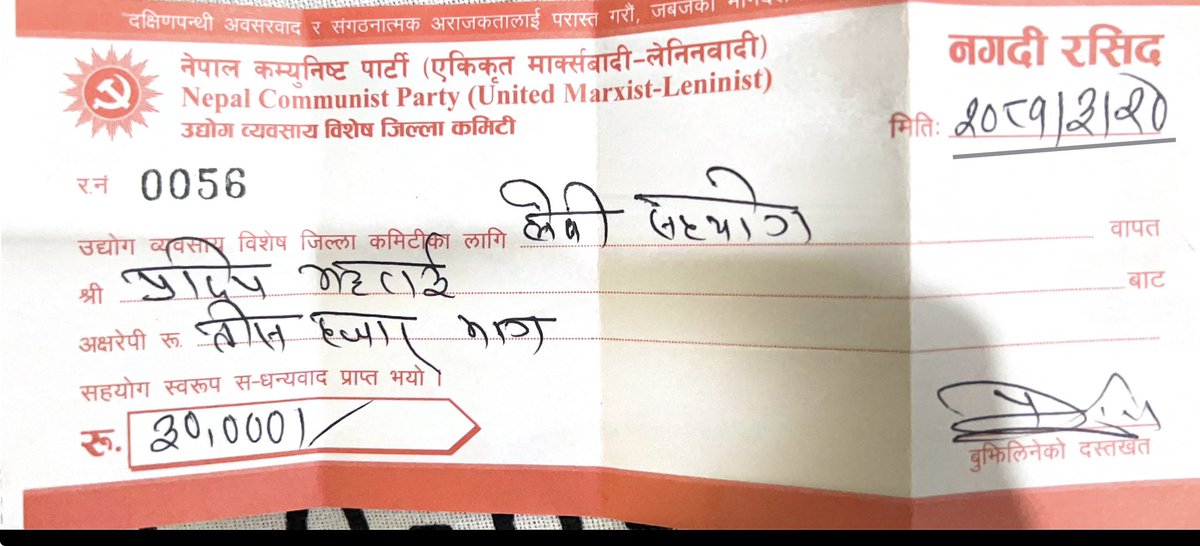 दक्षिणपन्थी अवसरवाद र संगठनात्मक अराजकतालाई परास्त गरौं, जबजको
नेपाल कम्युनिष्ट पार्टी (एकिकृत मार्क्सबादी-लेनिनवादी)
Nepal Communist Party (United Marxist-Leninist)
उद्योग व्यवसाय विशेष जिल्ला कमिटी
नगदी रसिद
मितिः २०८१/३/२०
र.नं 0056
उद्योग व्यवसाय विशेष जिल्ला कमिटीका लागि लेवी सहयोग वापत
श्री प्रदिप भट्टराई बाट
अक्षरेपी रू. तीस हजार मात्र
सहयोग स्वरूप स-धन्यवाद प्राप्त भयो ।
रू. ३०,०००/
बुझिलिनेको दस्तखत